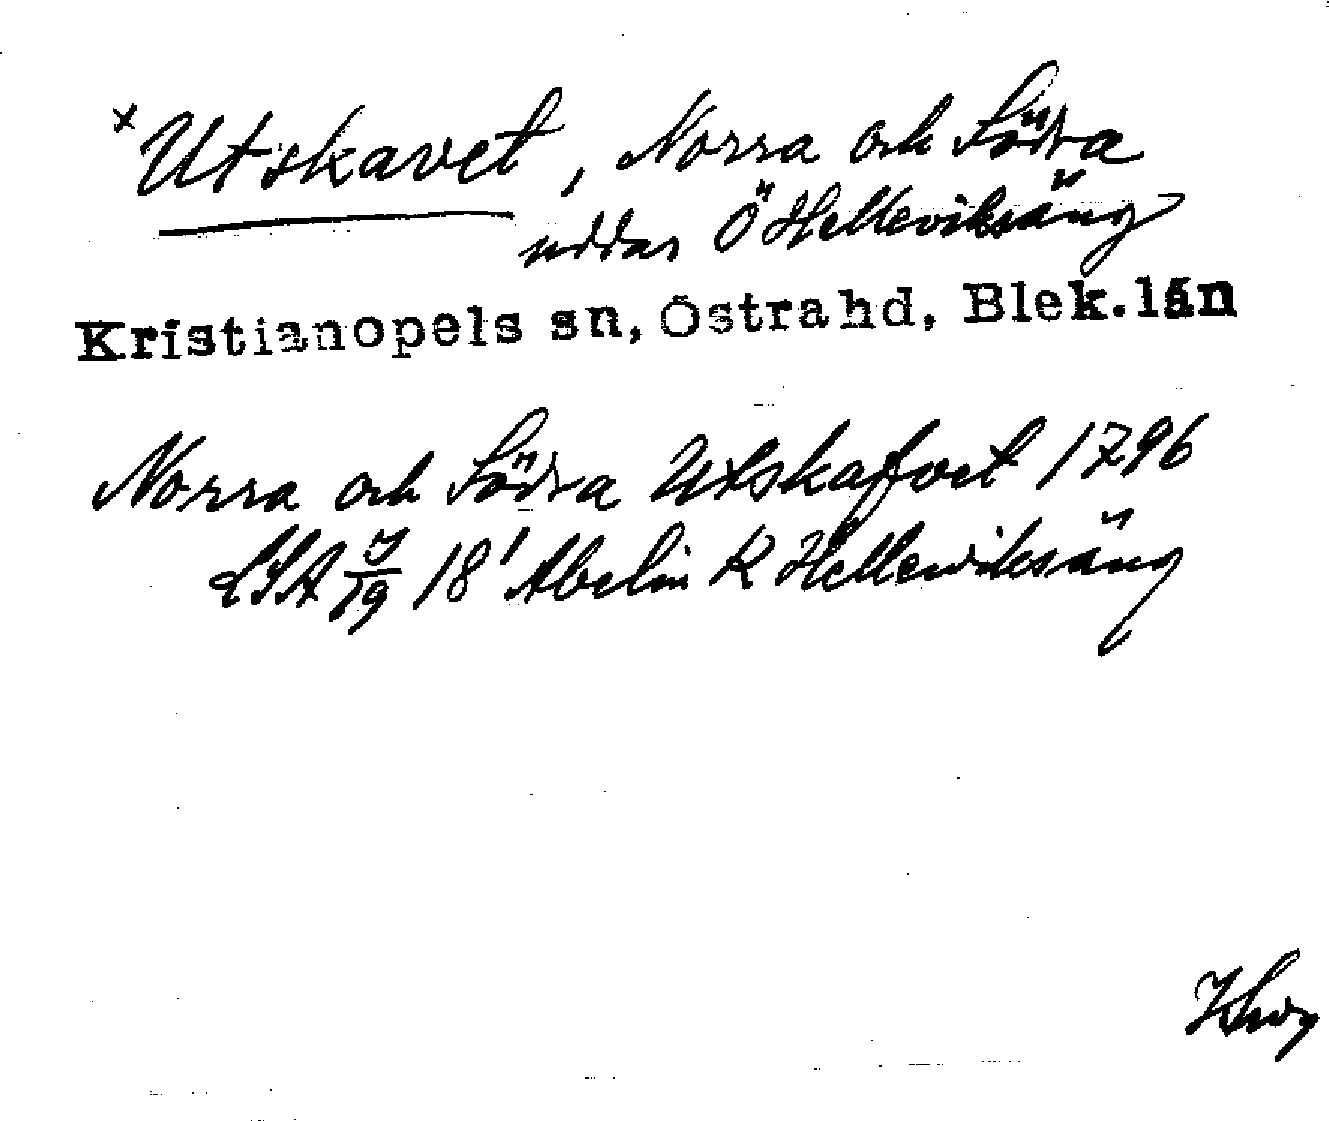 × Utskavet, Norra och Södra
uddar Ö Helleviksäng
Kristianopels sn, Östra hd, Blek. län
Norra och Södra Utskafvet 1796
LSA J/19 18¹ Abelin K Hellewiksäng